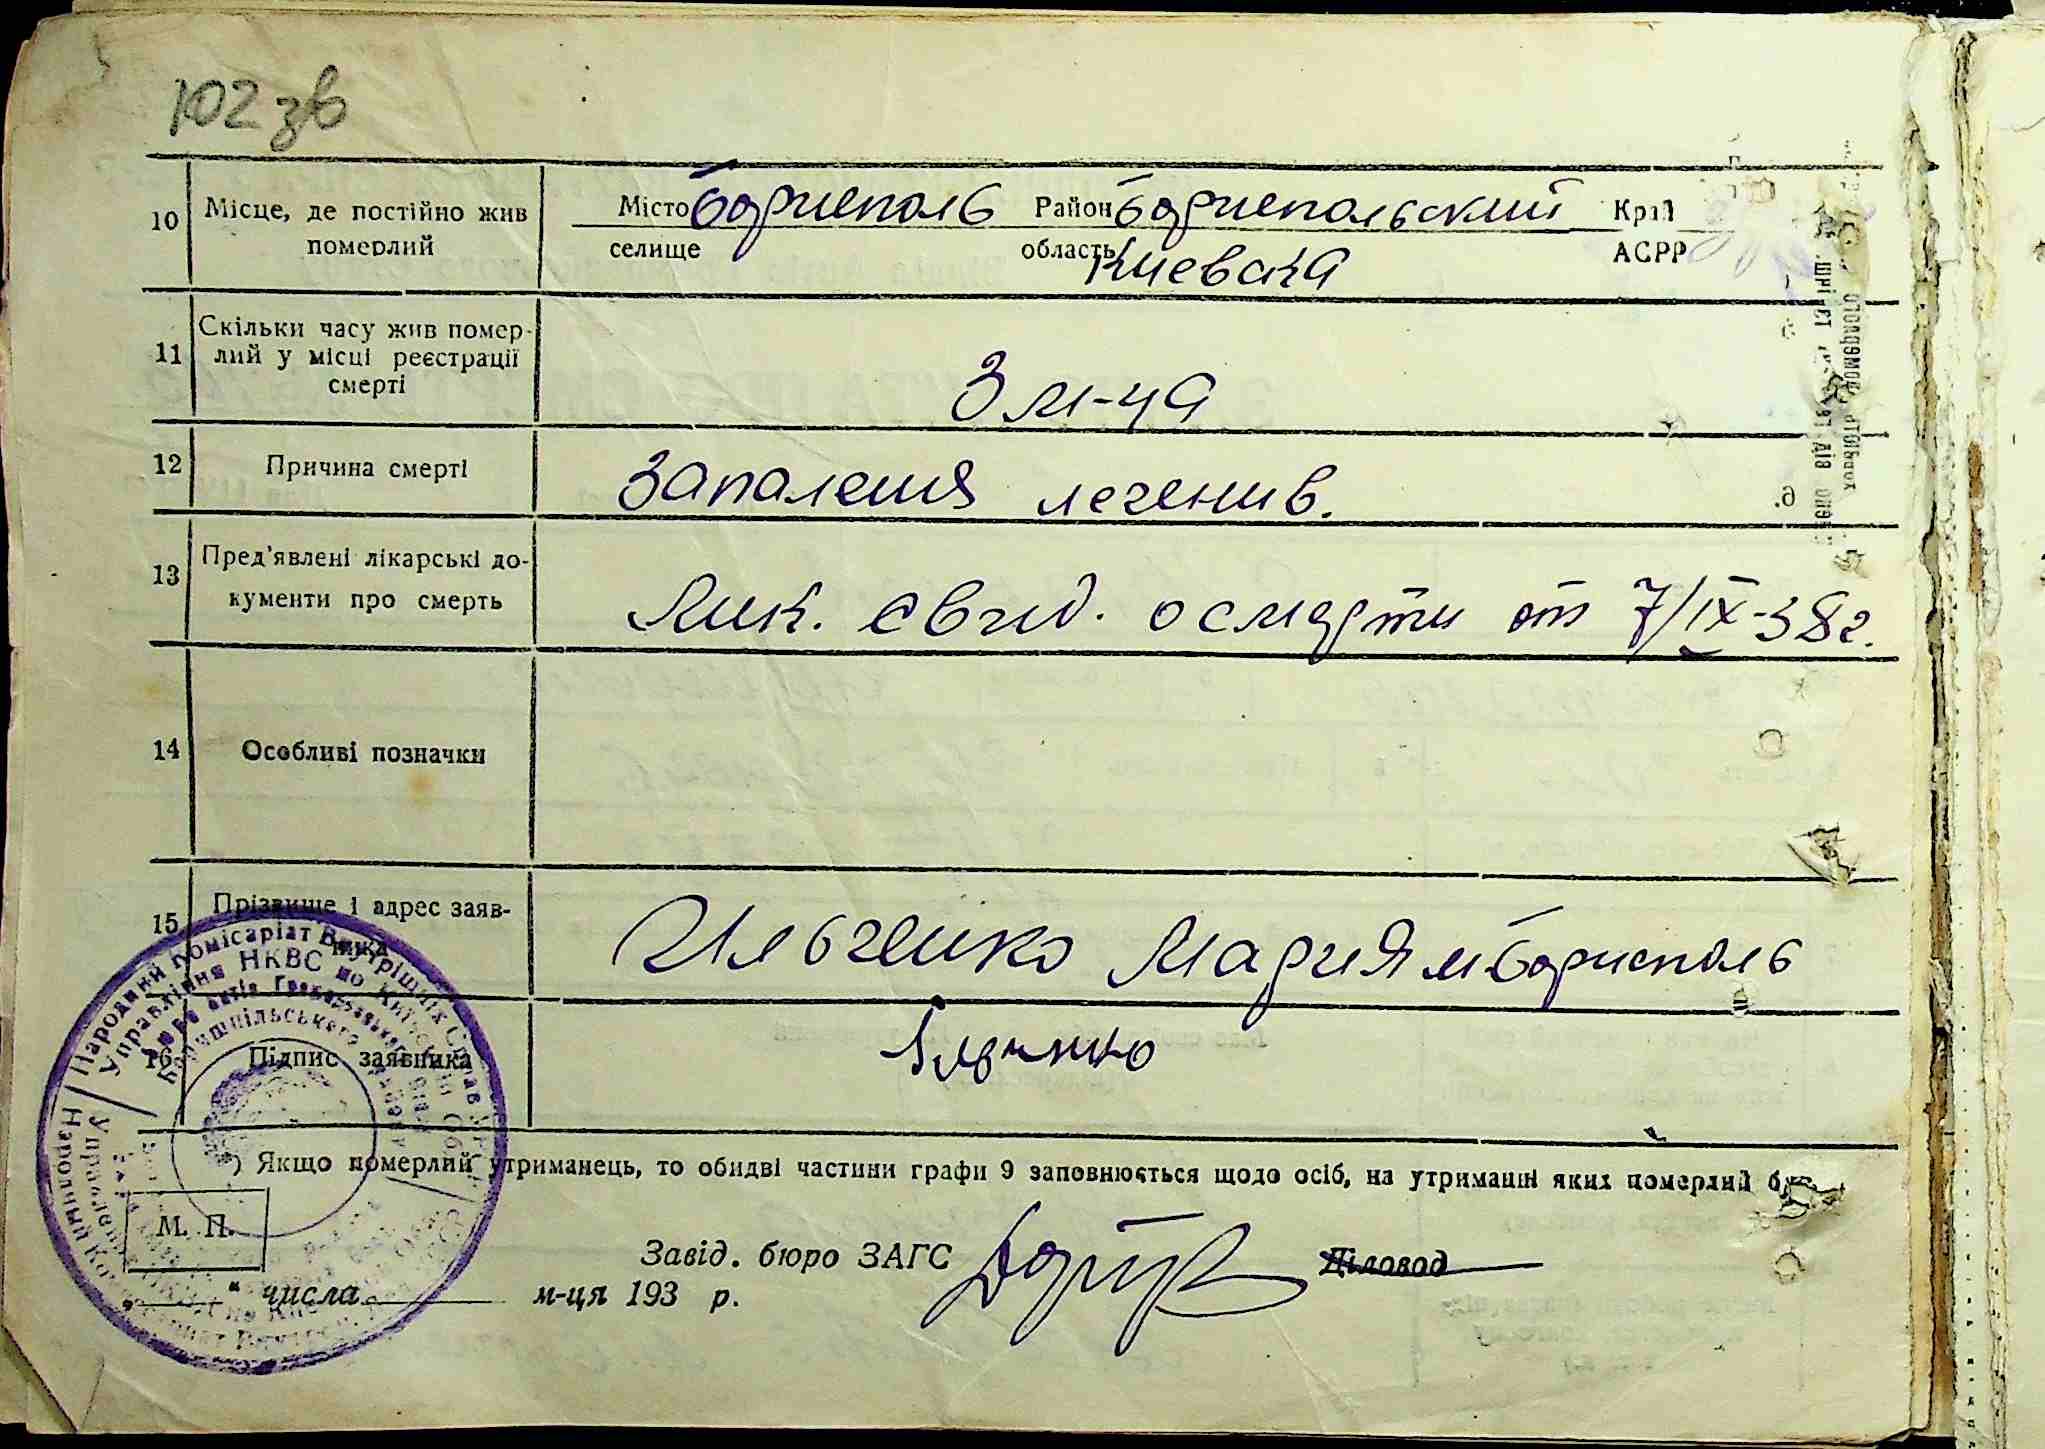 102 зв
10 Місце, де постійно жив померлий Місто Борисполь Район Бориспольский Край
селище область Киевская АСРР
11 Скільки часу жив помер-
лий у місці реєстрації
смерті 3 м-ца
12 Причина смерті Запаления легенив.
13 Пред'явлені лікарські до-
кументи про смерть Лик. свид. о смерти от 7/IX-38г.
14 Особливі позначки
15 Прізвище і адрес заяв-
ника Ильченко Мария м Борисполь
16 Підпис заявника Ильченко
Народний Комісаріат Внутрішніх Справ
Управління НКВС по Київській Обл.
) Якщо померлий утриманець, то обидві частини графи 9 заповнюється щодо осіб, на утриманні яких померлий був
М. П.
Завід. бюро ЗАГС Діловод
„ “ числа м-ця 193 р.